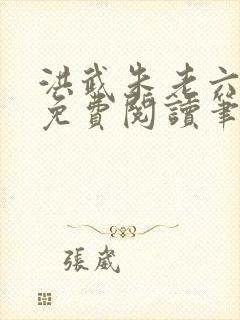 洪武朱老六
免費閱讀筆
張嵗